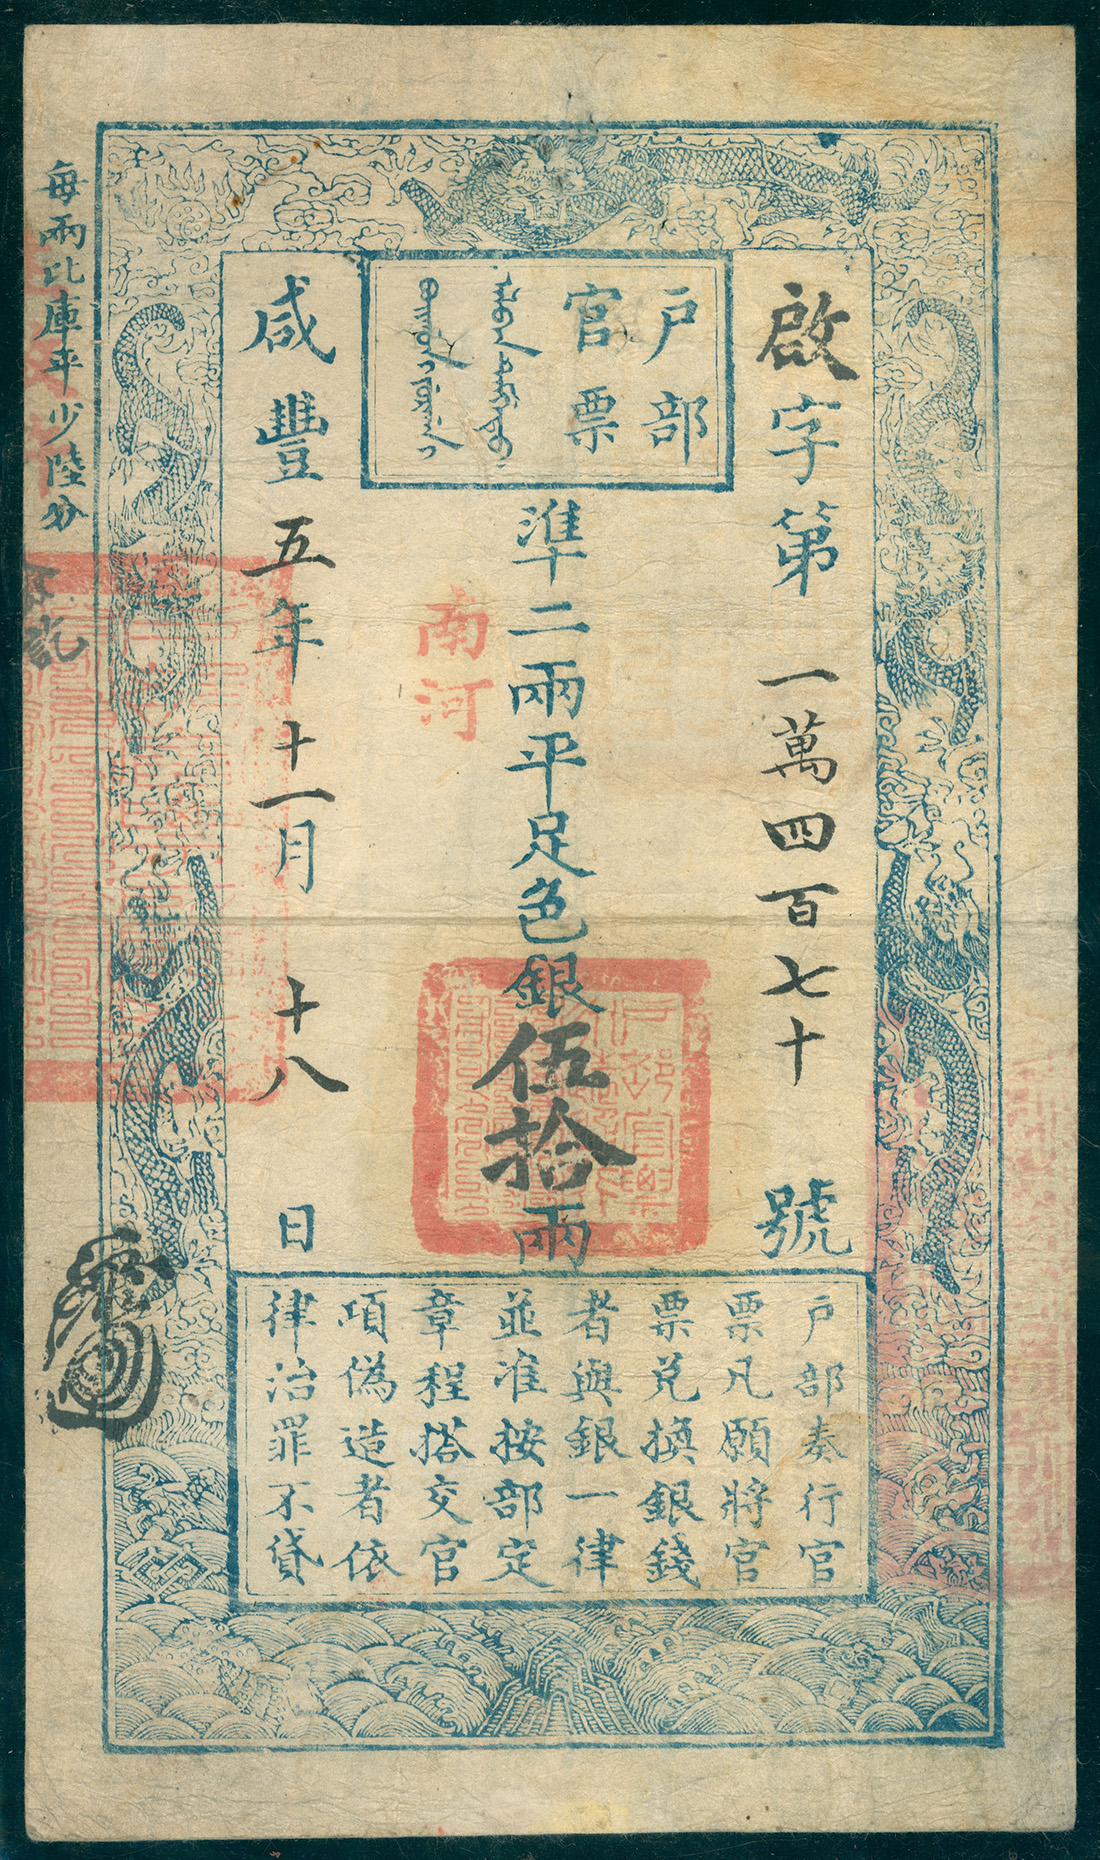 户部
官票
啟字第一萬四百七十號
準二兩平足色銀伍拾兩
南河
咸豐五年十一月十八日
每兩比庫平少陸分
户部奏行官
票凡願將官
票兑換銀錢
者與銀一律
並准按部定
章程搭交官
項偽造者依
律治罪不貸